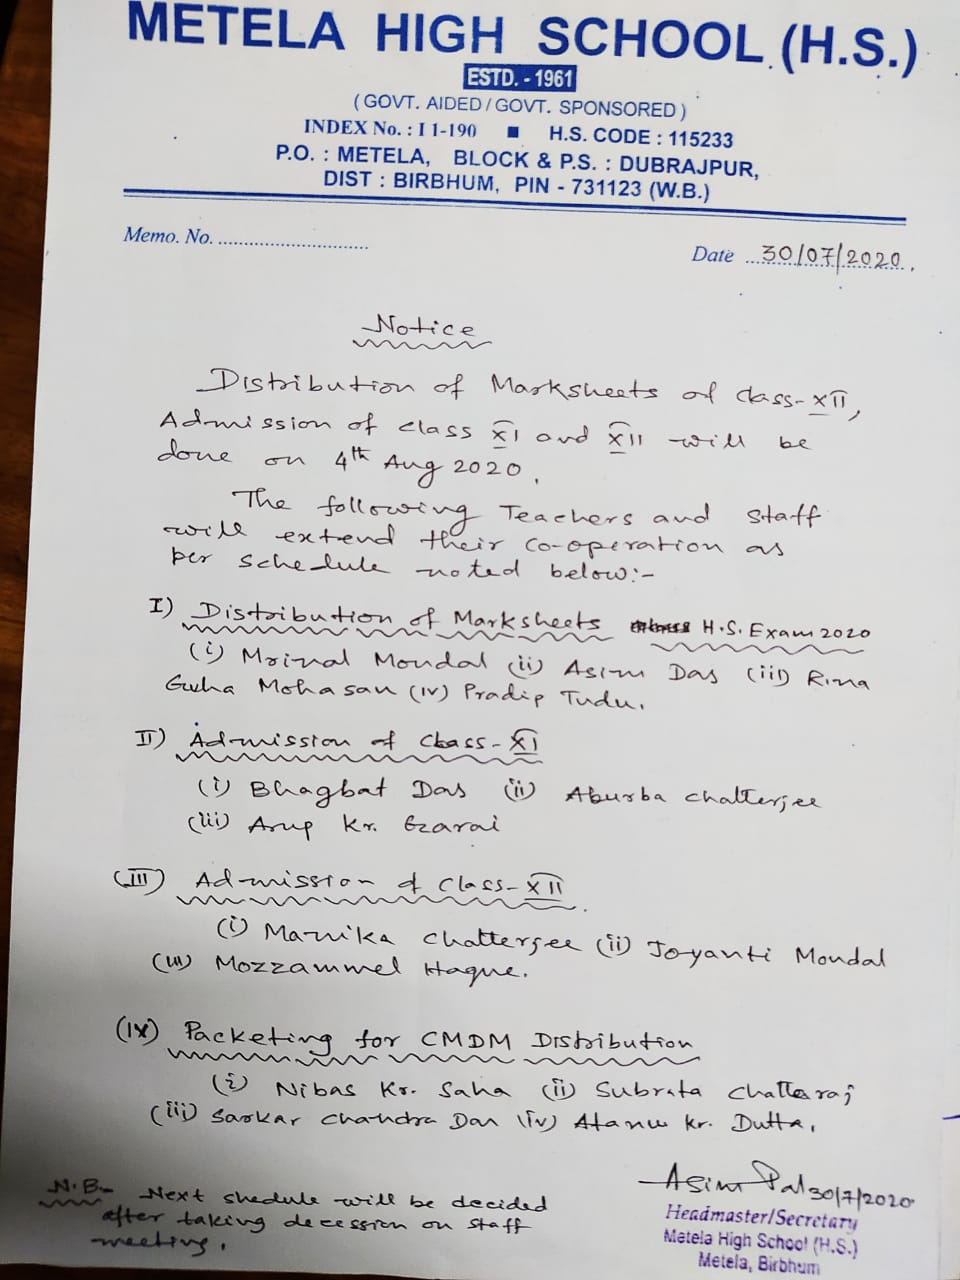 METELA HIGH SCHOOL (H.S.)
ESTD. - 1961
(GOVT. AIDED/GOVT. SPONSORED)
INDEX No. : I 1-190 ■ H.S. CODE : 115233
P.O. : METELA, BLOCK & P.S. : DUBRAJPUR,
DIST : BIRBHUM, PIN - 731123 (W.B.)
Memo. No. ............................
Date ...30/07/2020.
Notice
Distribution of Marksheets of class-XII,
Admission of class XI and XII will be
done on 4th Aug 2020.
The following Teachers and staff
will extend their co-operation as
per schedule noted below:-
I) Distribution of Marksheets H.S. Exam 2020
(i) Mrinal Mondal (ii) Asim Das (iii) Rina
Guha Mohasan (iv) Pradip Tudu.
II) Admission of Class-XI
(i) Bhagbat Das (ii) Aburba chatterjee
(iii) Arup Kr. Gzarai
(III) Admission of Class-XII
(i) Manika Chatterjee (ii) Joyanti Mondal
(iii) Mozzammel Haque.
(IX) Packeting for CMDM Distribution
(i) Nibas Kr. Saha (ii) Subrata Chattaraj
(iii) Sarkar Chandra Dan (iv) Atanu kr. Dutta.
N.B.- Next shedule will be decided
after taking decession on staff
meeting.
Asim Pal 30/7/2020
Headmaster/Secretary
Metela High School (H.S.)
Metela, Birbhum